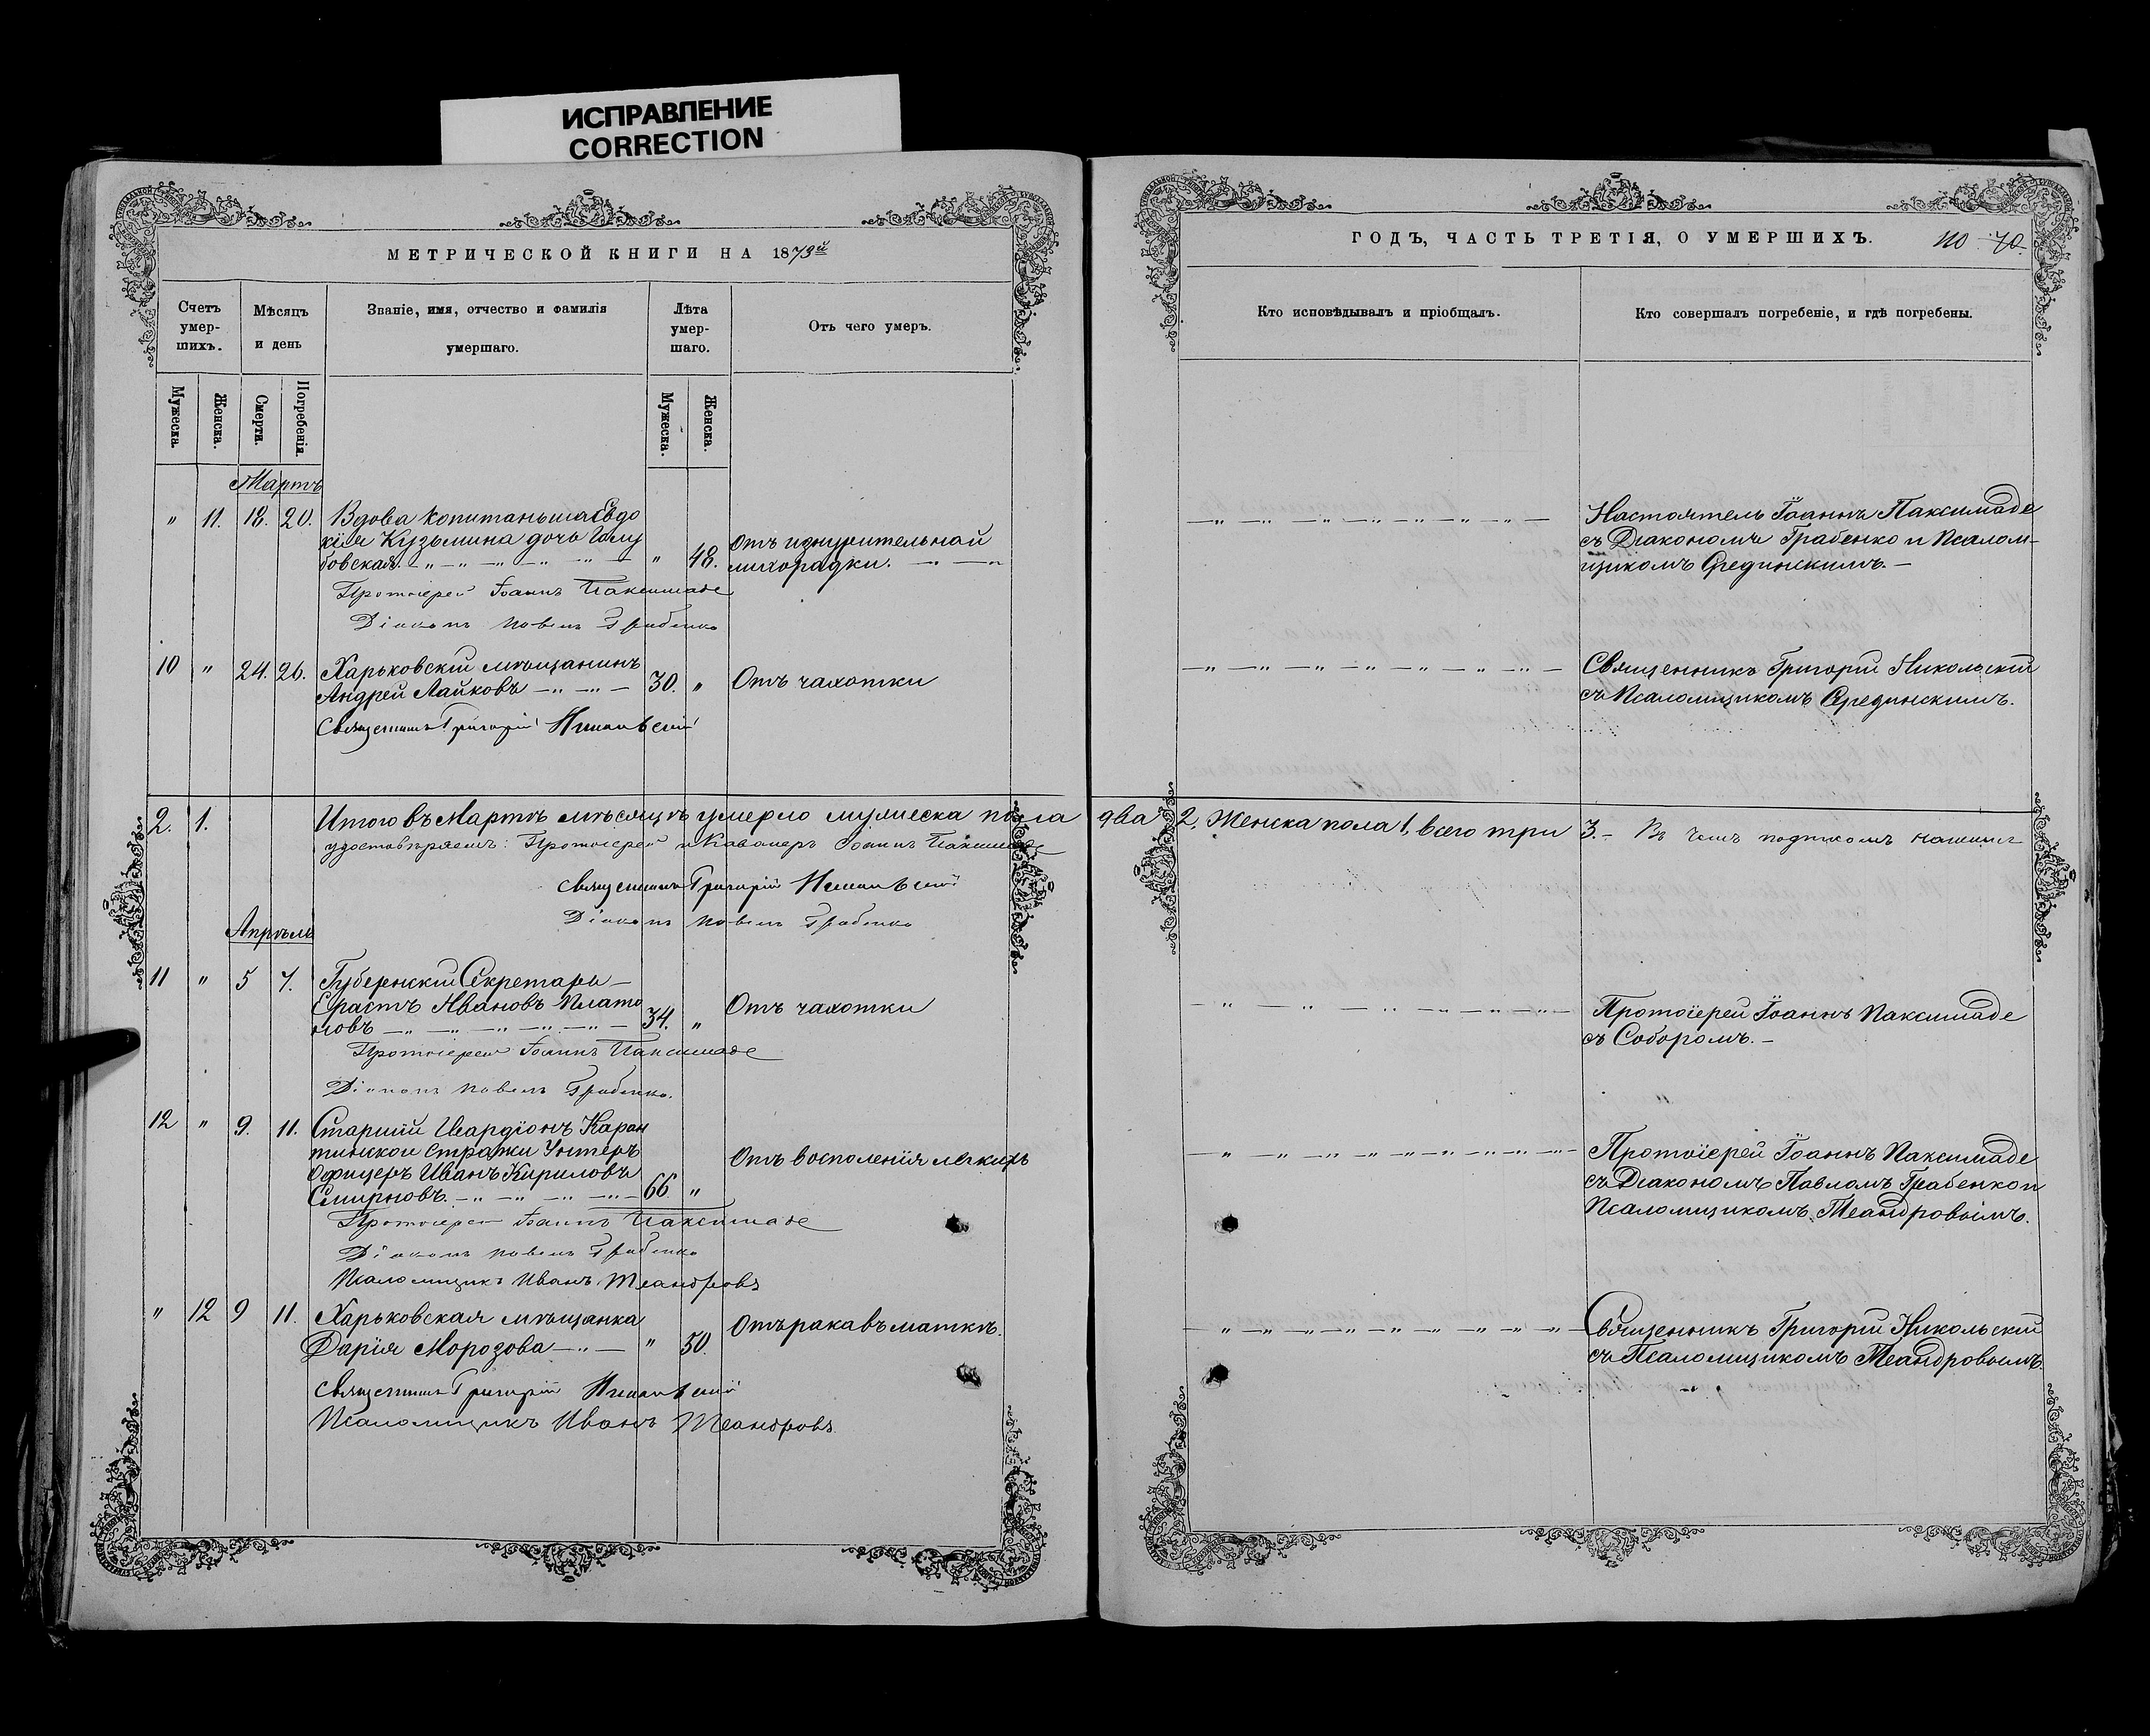 ИСПРАВЛЕНИЕ
CORRECTION
МЕТРИЧЕСКОЙ КНИГИ НА 1879й
Счетъ умер-шихъ.
Мѣсяцъ и день
Званіе, имя, отчество и фамилія умершаго.
Лѣта умер-шаго.
Отъ чего умеръ.
Мужеска.
Женска.
Смерти.
Погребенія.
Мужеска.
Женска.
Мартъ
" 11. 18. 20. Вдова Копитаньша Евдо
кія Кузьмина дочь Голу
бовская. " 48. Отъ изнурительной
лихорадки.
Протоіерей Іоаннъ Паксимаде
Діаконъ Павелъ Грабенко
10 " 24. 26. Харьковскій мѣщанинъ
Андрей Лайковъ 30. " Отъ чахотки
Священникъ Григорій Никольскій
2. 1. Итого въ Мартѣ мѣсяцѣ умерло мужеска пола
удостовѣряемъ: Протоіерей и Кавалеръ Іоаннъ Паксимаде
Священникъ Григорій Никольскій
Діаконъ Павелъ Грабенко
Апрѣль
11 " 5 7. Губернскій Секретарь
Ерастъ Ивановъ Плато
новъ 34. " Отъ чахотки
Протоіерей Іоаннъ Паксимаде
Діаконъ Павелъ Грабенко.
12 " 9. 11. Старшій Гвардіонъ Каран
тинской Стражи Унтеръ
Офицеръ Иванъ Кириловъ
Смирновъ. 66 " Отъ восполенія легкихъ
Протоіерей Іоаннъ Паксимаде
Діаконъ Павелъ Грабенко
Псаломщикъ Иванъ Меандровъ
" 12 9 11. Харьковская мѣщанка
Дарія Морозова " 50. Отъ рака въ маткѣ.
Священникъ Григорій Никольскій
Псаломщикъ Иванъ Меандровъ
ГОДЪ, ЧАСТЬ ТРЕТІЯ, О УМЕРШИХЪ.
110 70
Кто исповѣдывалъ и пріобщалъ.
Кто совершалъ погребеніе, и гдѣ погребены.
Настоятель Іоаннъ Паксимаде
съ Діакономъ Грабенко и Псалом-
щикомъ Срединскимъ.
Священникъ Григорій Никольскій
съ Псаломщикомъ Срединскимъ.
два 2. Женска пола 1, всего три 3. Въ чемъ подписомъ нашимъ
Протоіерей Іоаннъ Паксимаде
съ Соборомъ.
Протоіерей Іоаннъ Паксимаде
съ Діакономъ Павломъ Грабенко и
Псаломщикомъ Меандровымъ.
Священникъ Григорій Никольскій
съ Псаломщикомъ Меандровымъ.